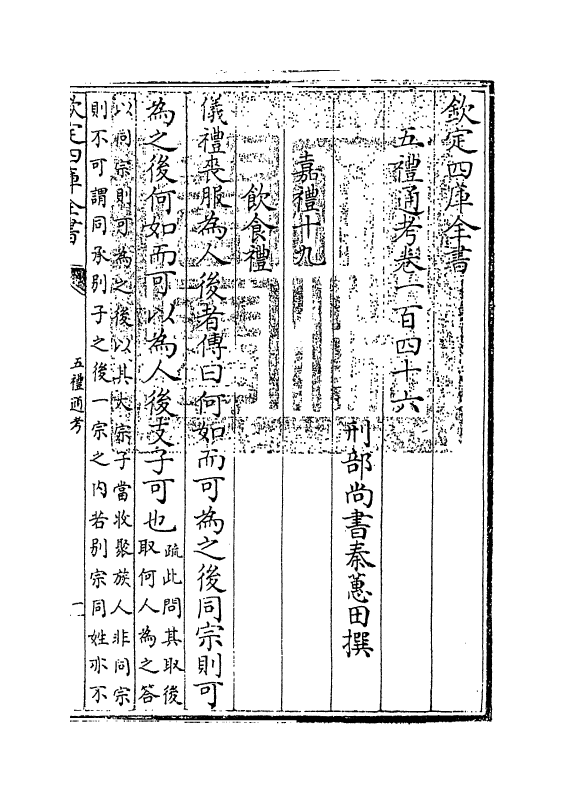 欽定四庫全書
五禮通考卷一百四十六
刑部尚書秦蕙田撰
嘉禮十九
飲食禮
儀禮喪服為人後者傳曰何如而可為之後同宗則可
為之後何如而可以為人後支子可也疏此問其取後
取何人為之答
以同宗則可為之後以其大宗子當收聚族人非同宗
則不可謂同承別子之後一宗之內若別宗同姓亦不
欽定四庫全書
五禮通考
一